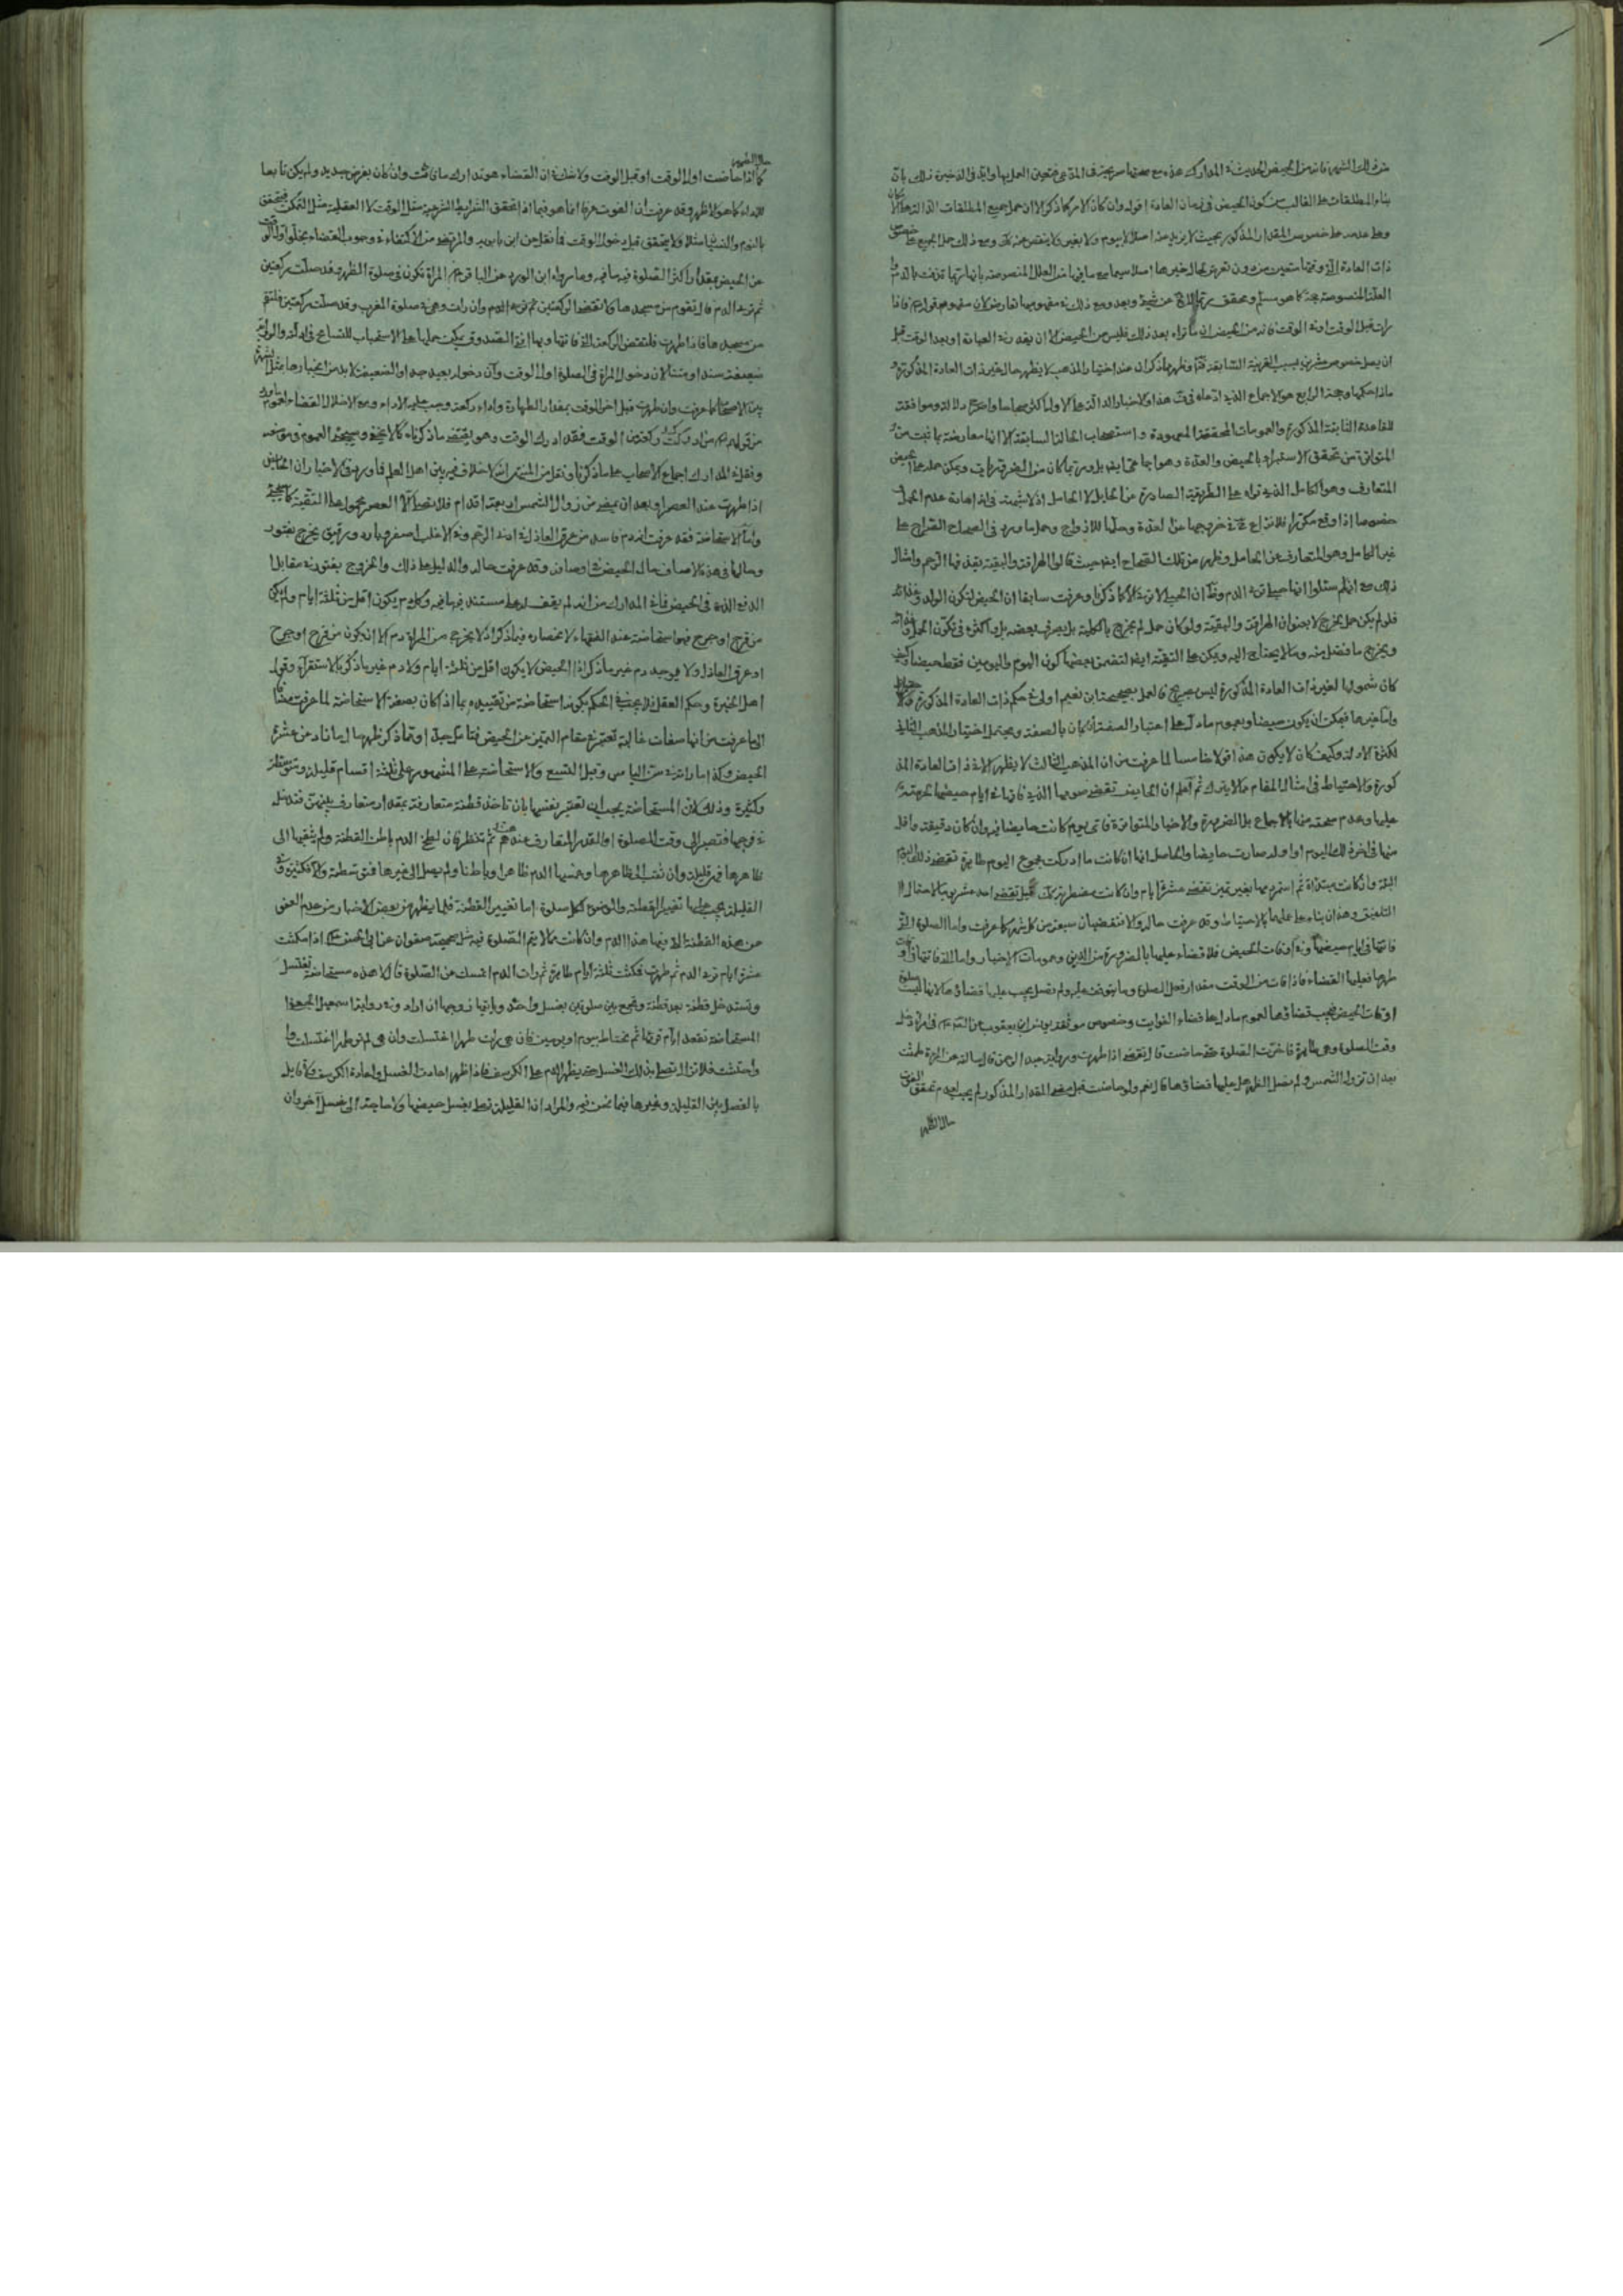 من ذلك الشهر فانه من الحيض الحديث في المدارك هذه مع صحتها صريحة في المدعى فتعين العمل بها واليه في الذخيرة بان
بناء المطلقات على الغالب من كون الحيض في زمان العادة اقول وان كان الامر كما ذكر الا ان حمل جميع المطلقات
خصوص المقدار المذكور بحيث لا يزيد منه اصلا لا بيوم ولا بغيره ولا ينقص عنه كك ومع ذلك حمل الجميع على
ذات العادة من دون تعرض لحال غيرها اصلا سيما مع ما في العلل المنصوصة بانها ربما قذفت بالدم
العلة المنصوصة حجة كما هو مسلم ومحقق ومع ذلك مفهومها
رات قبل الوقت او في الوقت فانه من الحيض ان ما تراه بعد ذلك فليس من الحيض
ان يصل خصوص عشرين بسبب القرينة السابقة وظهر مما ذكر ان عند اختيار المذهب لا يظهر حال غير ذات العادة المذكورة
حكمها وحجة الرابع هو الاجماع الذي ادعاه في هذا والاخبار الدالة على الاول اكثر صحاحا واوضح دلالة وموافقة
للقاعدة الثابتة المذكورة والعمومات المحققة المعهودة واستصحاب الحالة السابقة الا انها معارضة بما ثبت من
المتواتر من تحقق الاستبراء بالحيض والعدة وهو اجماعي ايضا بل وربما كان من الضروريات ويمكن حمله على الحيض
المتعارف وهو الكامل الذي تراه على الطريقة الصادرة من الحايل لا الحامل اذ لا شبهة في افادته عدم الحمل
خصوصا اذا وقع مكررا فلا نزاع في خروجها عن العدة وحلها للازواج وحمل ما ورد في الصحاح الصراح على
غير الحامل وهو المتعارف من الحامل وظهر من تلك الصحاح ايضا حيث قالوا الهراقة والبقية يقذفها الرحم وامثال
ذلك مع انهم سئلوا انها حبلى ترى الدم وظ ان الحبلى لا ترى الا كما ذكرنا وعرفت سابقا ان الحيض لتكون الولد وغذائه
فلو لم يكن حمل يخرج لا بعنوان الهراقة والبقية ولو كان حمل لم يخرج بالكلية بل يصرف بعضه بل واكثره في تكون الحمل وغذائه
ويخرج ما فضل منه وما لا يحتاج اليه ويمكن على التقية ايضا لتضمن بعضها كون اليوم واليومين فقط حيضا وكيف
كان شمولها لغير ذات العادة المذكورة ليس بصريح فالعمل بصحيحة ابن نعيم اولى في حكم ذات العادة المذكورة
واما غيرها فيمكن ان يكون حيضا وبعموم ما دل على اعتبار الصفة ان كان بالصفة ويحتمل اختيار المذهب الثاني
لكثرة الادلة وكيف كان لا يكون هذا قولا خامسا لما عرفت من ان المذهب الثالث لا يظهر الا في ذات العادة المذ
كورة والاحتياط في امثال المقام مما لا يترك ثم اعلم ان الحايض تقضي صومها الذي فاتها في ايام حيضها لحرمته
عليها وعدم صحته منها بالاجماع بل الضرورة والاخبار المتواترة فاي يوم كانت حايضا فيه وان كان دقيقة واقل
منها في اخر ذلك اليوم او اوله صارت حايضا والحاصل انها ان كانت ما ادركت مجموع اليوم طاهرة تقضي ذلك اليوم
البتة وان كانت مبتدأة ثم استمر دمها بغير تميز تقضي عشرة ايام وان كانت مضطربة كك قيل تقضي احد عشر يوما لاحتمال
التلفيق وهذا ان بناء على عملها بالاحتياط وقد عرفت حاله والا فتقضيان سبعة من كل شهر كما عرفت واما الصلوة التي
فاتتها في ايام حيضها وفي اوقات الحيض فلا قضاء عليها بالضرورة من الدين وعمومات الاخبار واما التي فاتتها في اوقات
طهرها فعليها القضاء فاذا فات من الوقت مقدار فعل الصلوة وما يتوقف عليه ولم تصل يجب عليها قضاؤها لانها ليست صلوة
اوقات الحيض فيجب قضاؤها لعموم ما دل على قضاء الفوايت وخصوص موثقة يونس ابن يعقوب عن الص ع في امرأة دخل
وقت الصلوة وهي طاهرة فاخرت الصلوة حتى حاضت قال تقضي اذا طهرت ورواية عبد الرحمن قال سالته عن المرأة طمثت
بعد ان تزول الشمس ولم تصل الظهر هل عليها قضاؤها قال نعم ولو حاضت قبل مضي المقدار المذكور لم يجب لعدم تحقق الفوت
حال الطهر
كما اذا حاضت اول الوقت او قبل الوقت ولا شك في ان القضاء هو تدارك ما فاتت وان كان بفرض جديد ولم يكن تابعا
للاداء كما هو الاظهر وقد عرفت ان الفوت عرفا انما هو فيما اذا تحقق الشرايط الشرعية مثل الوقت لا العقلية مثل التمكن فيتحقق
بالنوم والنسيان مثلا ولا يتحقق قبل دخول الوقت فما نقل عن ابن بابويه والمرتضى من الاكتفاء في وجوب القضاء بخلو اول الوقت
عن الحيض بمقدار اكثر الصلوة فيه ما فيه وما رواه ابن الورد عن الباقر ع في المراة تكون في صلوة الظهر وقد صلت ركعتين
ثم ترى الدم قال تقوم من مسجدها ولا تقضي الركعتين ثم ترى الدم وان رات وهي في صلوة المغرب وقد صلت ركعتين فلتقم
من مسجدها فاذا طهرت فلتقض الركعة التي فاتتها وبها افتى الصدوق يمكن حملها على الاستحباب للتسامح في ادلته والرواية
ضعيفة سندا ومتنا لان دخول المراة في الصلوة اول الوقت وان دخوله بعيد جدا والضعيف لا بد من انجبارها مثل الشهرة
بين الاصحاب كما عرفت وان طهرت قبل اخر الوقت بمقدار الطهارة واداء ركعة وجب عليه الاداء ومع الاخلال القضاء لعموم ما ورد
من قولهم ع من ادرك ركعة من الوقت فقد ادرك الوقت وهو يقتضي ما ذكرناه كما لا يخفى وسيجيء العموم في موضعه
وفي المدارك اجماع الاصحاب على ما ذكرنا ونقل من المنتهى انه لا خلاف فيه بين اهل العلم فما ورد في الاخبار ان الحايض
اذا طهرت عند العصر او بعد ان يمضي من زوال الشمس اربعة اقدام فلا تصلي الا العصر محمول على التقية كما سيجيء
واما الاستحاضة فقد عرفت انه دم فاسد من عرق العاذل في ادنى الرحم وفي الاغلب اصفر وبارد ورقيق يخرج بفتور
وحالها في هذه الاوصاف حال الحيض في اوصافه وقد عرفت حاله والدليل على ذلك والخروج بفتور في مقابل
الدفع الذي في الحيض فما في المدارك من انه لم يقف له على مستند فيه ما فيه وكل دم يكون اقل من ثلثة ايام ولم يكن
من قرح او جرح فهو استحاضة عند الفقهاء لانحصاره فيما ذكر اذ لا يخرج من المراة دم الا ان يكون من قرح او جرح
او عرق العاذل ولا يوجد دم غير ما ذكر اذ الحيض لا يكون اقل من ثلثة ايام ولا دم غير ما ذكر بالاستقراء وقول
اهل الخبرة وحكم العقل فلا يجب في الحكم بكونه استحاضة من تقييده بما اذا كان بصفة الاستحاضة لما عرفت مضافا
الى ما عرفت من انها صفات غالبة تعتبر في مقام التميز عن الحيض فتامل جدا ومما ذكر ظهر حال ما زاد عن عشرة
الحيض وكذا ما رات في سن الياس وقبل التسع والاستحاضة على المشهور على ثلثة اقسام قليلة ومتوسطة
وكثيرة وذلك لان المستحاضة يجب ان تعتبر نفسها بان تاخذ قطنة متعارفة بمقدار متعارف فتدخل
في فرجها فتصبر الى وقت الصلوة او القدر المتعارف عندهن ثم تنظر فان لطخ الدم باطن القطنة ولم يثقبها الى
ظاهرها فهي قليلة وان ثقب الى ظاهرها وغمسها الدم ظاهرا وباطنا ولم يصل الى غيرها فمتوسطة والا فكثيرة وفي
القليلة يجب عليها تغيير القطنة والوضوء لكل صلوة اما تغيير القطنة فلما يظهر من بعض الاخبار من عدم العفو
عن هذه القطنة التي فيها هذا الدم وان كانت مما لا يتم الصلوة فيه مثل صحيحة صفوان عن ابي الحسن ع اذا مكثت
عشرة ايام ترى الدم ثم طهرت فمكثت ثلثة ايام طاهرة ثم رات الدم اتمسك عن الصلوة قال لا هذه مستحاضة تغتسل
وتستدخل قطنة بعد قطنة وتجمع بين صلوتين بغسل واحد وياتيها زوجها ان اراد وفي رواية اسمعيل الجعفي
المستحاضة تقعد ايام قرئها ثم تحتاط بيوم او يومين فان هي رات طهرا اغتسلت وان هي لم تر طهرا اغتسلت
واحتشت فلا تزال تصلي بذلك الغسل حتى يظهر الدم على الكرسف فاذا ظهر اعادت الغسل واعادة الكرسف ولا قايل
بالفصل بين القليلة وغيرها فيما نحن فيه والمراد ان القليلة تصلي بغسل حيضها ولا حاجة الى غسل اخر وان